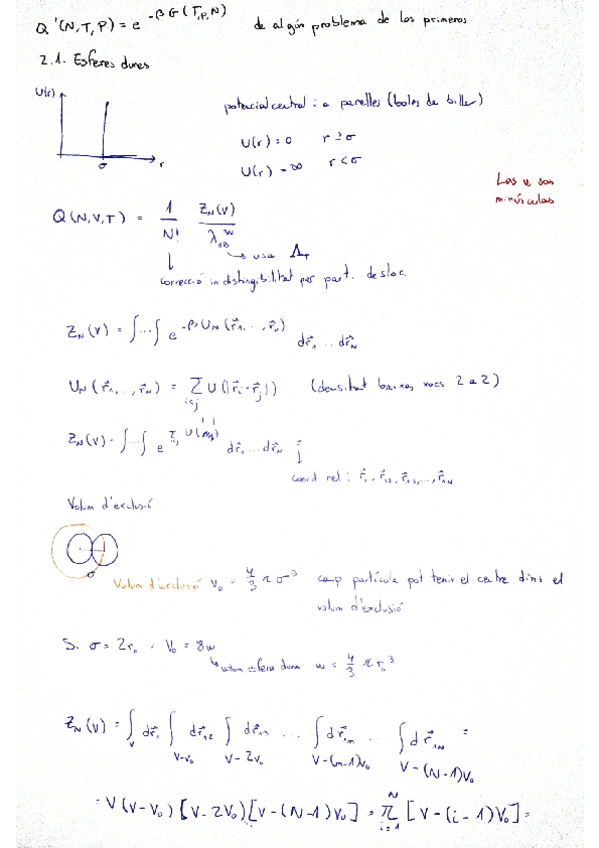 Q'(N,T,P) = e^{-βG(T,P,N)} de algún problema de los primeros
2.1. Esferes dures
U(r)
σ r
potencial central i a parelles (boles de billar)
U(r) = 0 r ≥ σ
U(r) = ∞ r < σ
Las v son
minúsculas
Q(N,V,T) = 1/N! Z_N(V)/λ_{dB}^{3N}
→ usa Λ_T
correcció indistingibilitat per part. desloc.
Z_N(V) = ∫...∫ e^{-βU_N(r⃗_1,...,r⃗_N)} dr⃗_1...dr⃗_N
U_N(r⃗_1,...,r⃗_N) = Σ_{i<j} U(|r⃗_i-r⃗_j|) (densitat baixa, xocs 2 a 2)
Z_N(V) = ∫...∫ e dr⃗_1...dr⃗_N
coord rel: r⃗_1, r⃗_12, r⃗_13,...,r⃗_1N
Volum d'exclusió
σ
Volum d'exclusió v_0 = 4/3 π σ^3 cap partícula pot tenir el centre dins el
volum d'exclusió
Si σ = 2r_0, V_0 = 8w
↳ volum esfera dura w = 4/3 π r_0^3
Z_N(V) = ∫_V dr⃗_1 ∫_{V-V_0} dr⃗_12 ∫_{V-2V_0} dr⃗_13 ... ∫_{V-(m-1)V_0} dr⃗_1m ... ∫_{V-(N-1)V_0} dr⃗_1N =
= V(V-V_0)[V-2V_0][V-(N-1)V_0] = π_{i=1}^N [V-(i-1)V_0] =